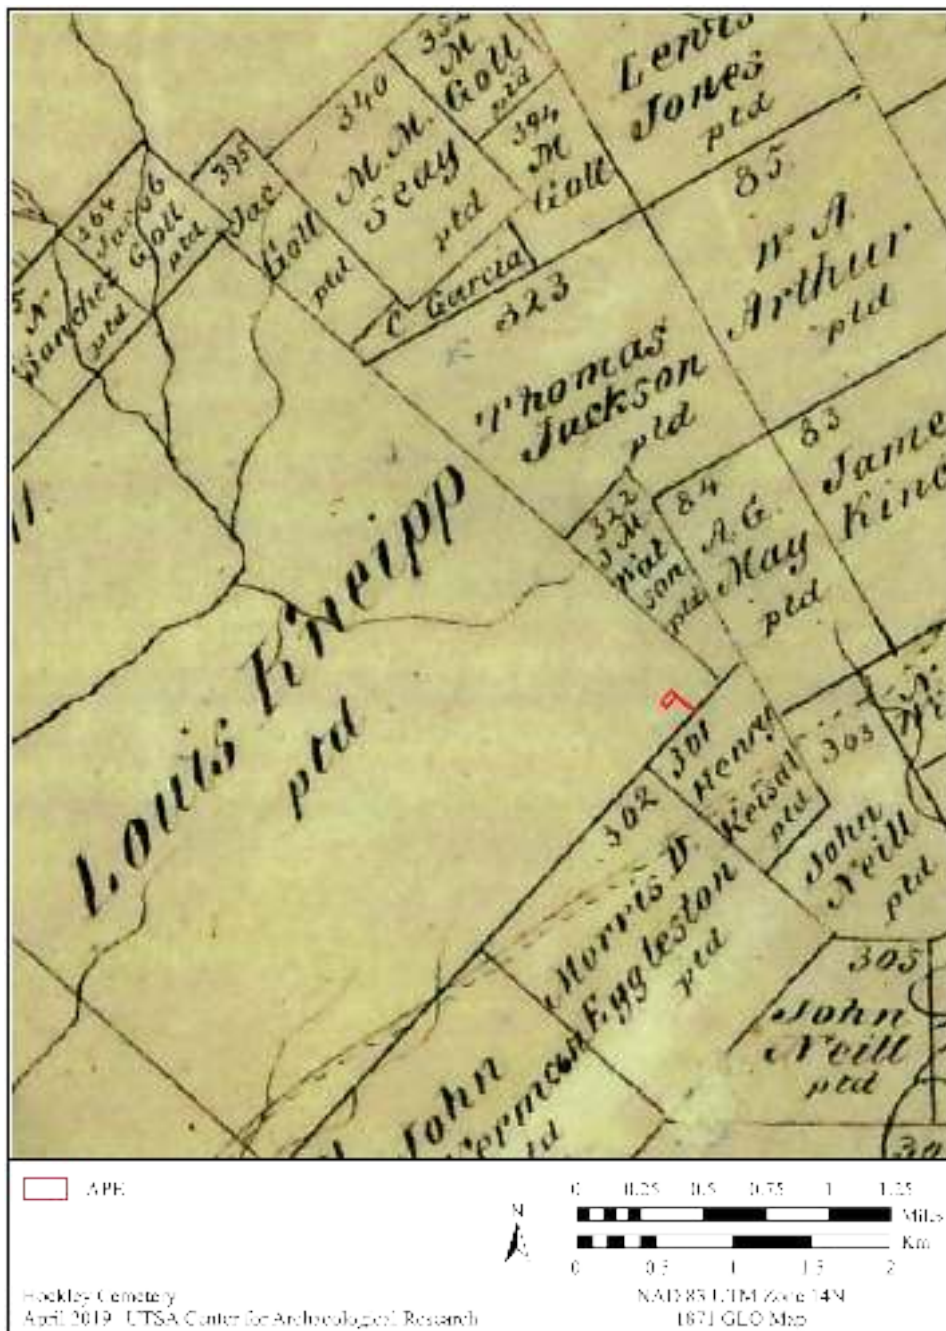 352
M
Goll
ptd
Lewis
Jones
ptd
340
M. M.
Seay
ptd
394
M
Goll
395
Jac.
Goll
ptd
366
Jac
Goll
ptd
364
A
Sanchez
ptd
C Garcia
323
Thomas
Jackson
ptd
85
W A
Arthur
ptd
83
Jame
King
322
J M
Wat
son
ptd
84
A. G.
May
ptd
Louis Kneipp
ptd
301
Henry
Keisal
ptd
302
Morris D.
Eggleston
ptd
303
John
Neill
ptd
305
John
Neill
ptd
John
ptd
APE
N
0 0.25 0.5 0.75 1 1.25
Miles
Km
0 0.5 1 1.5 2
Hockley Cemetery
April 2019 UTSA Center for Archaeological Research
NAD 83 UTM Zone 14N
1871 GLO Map